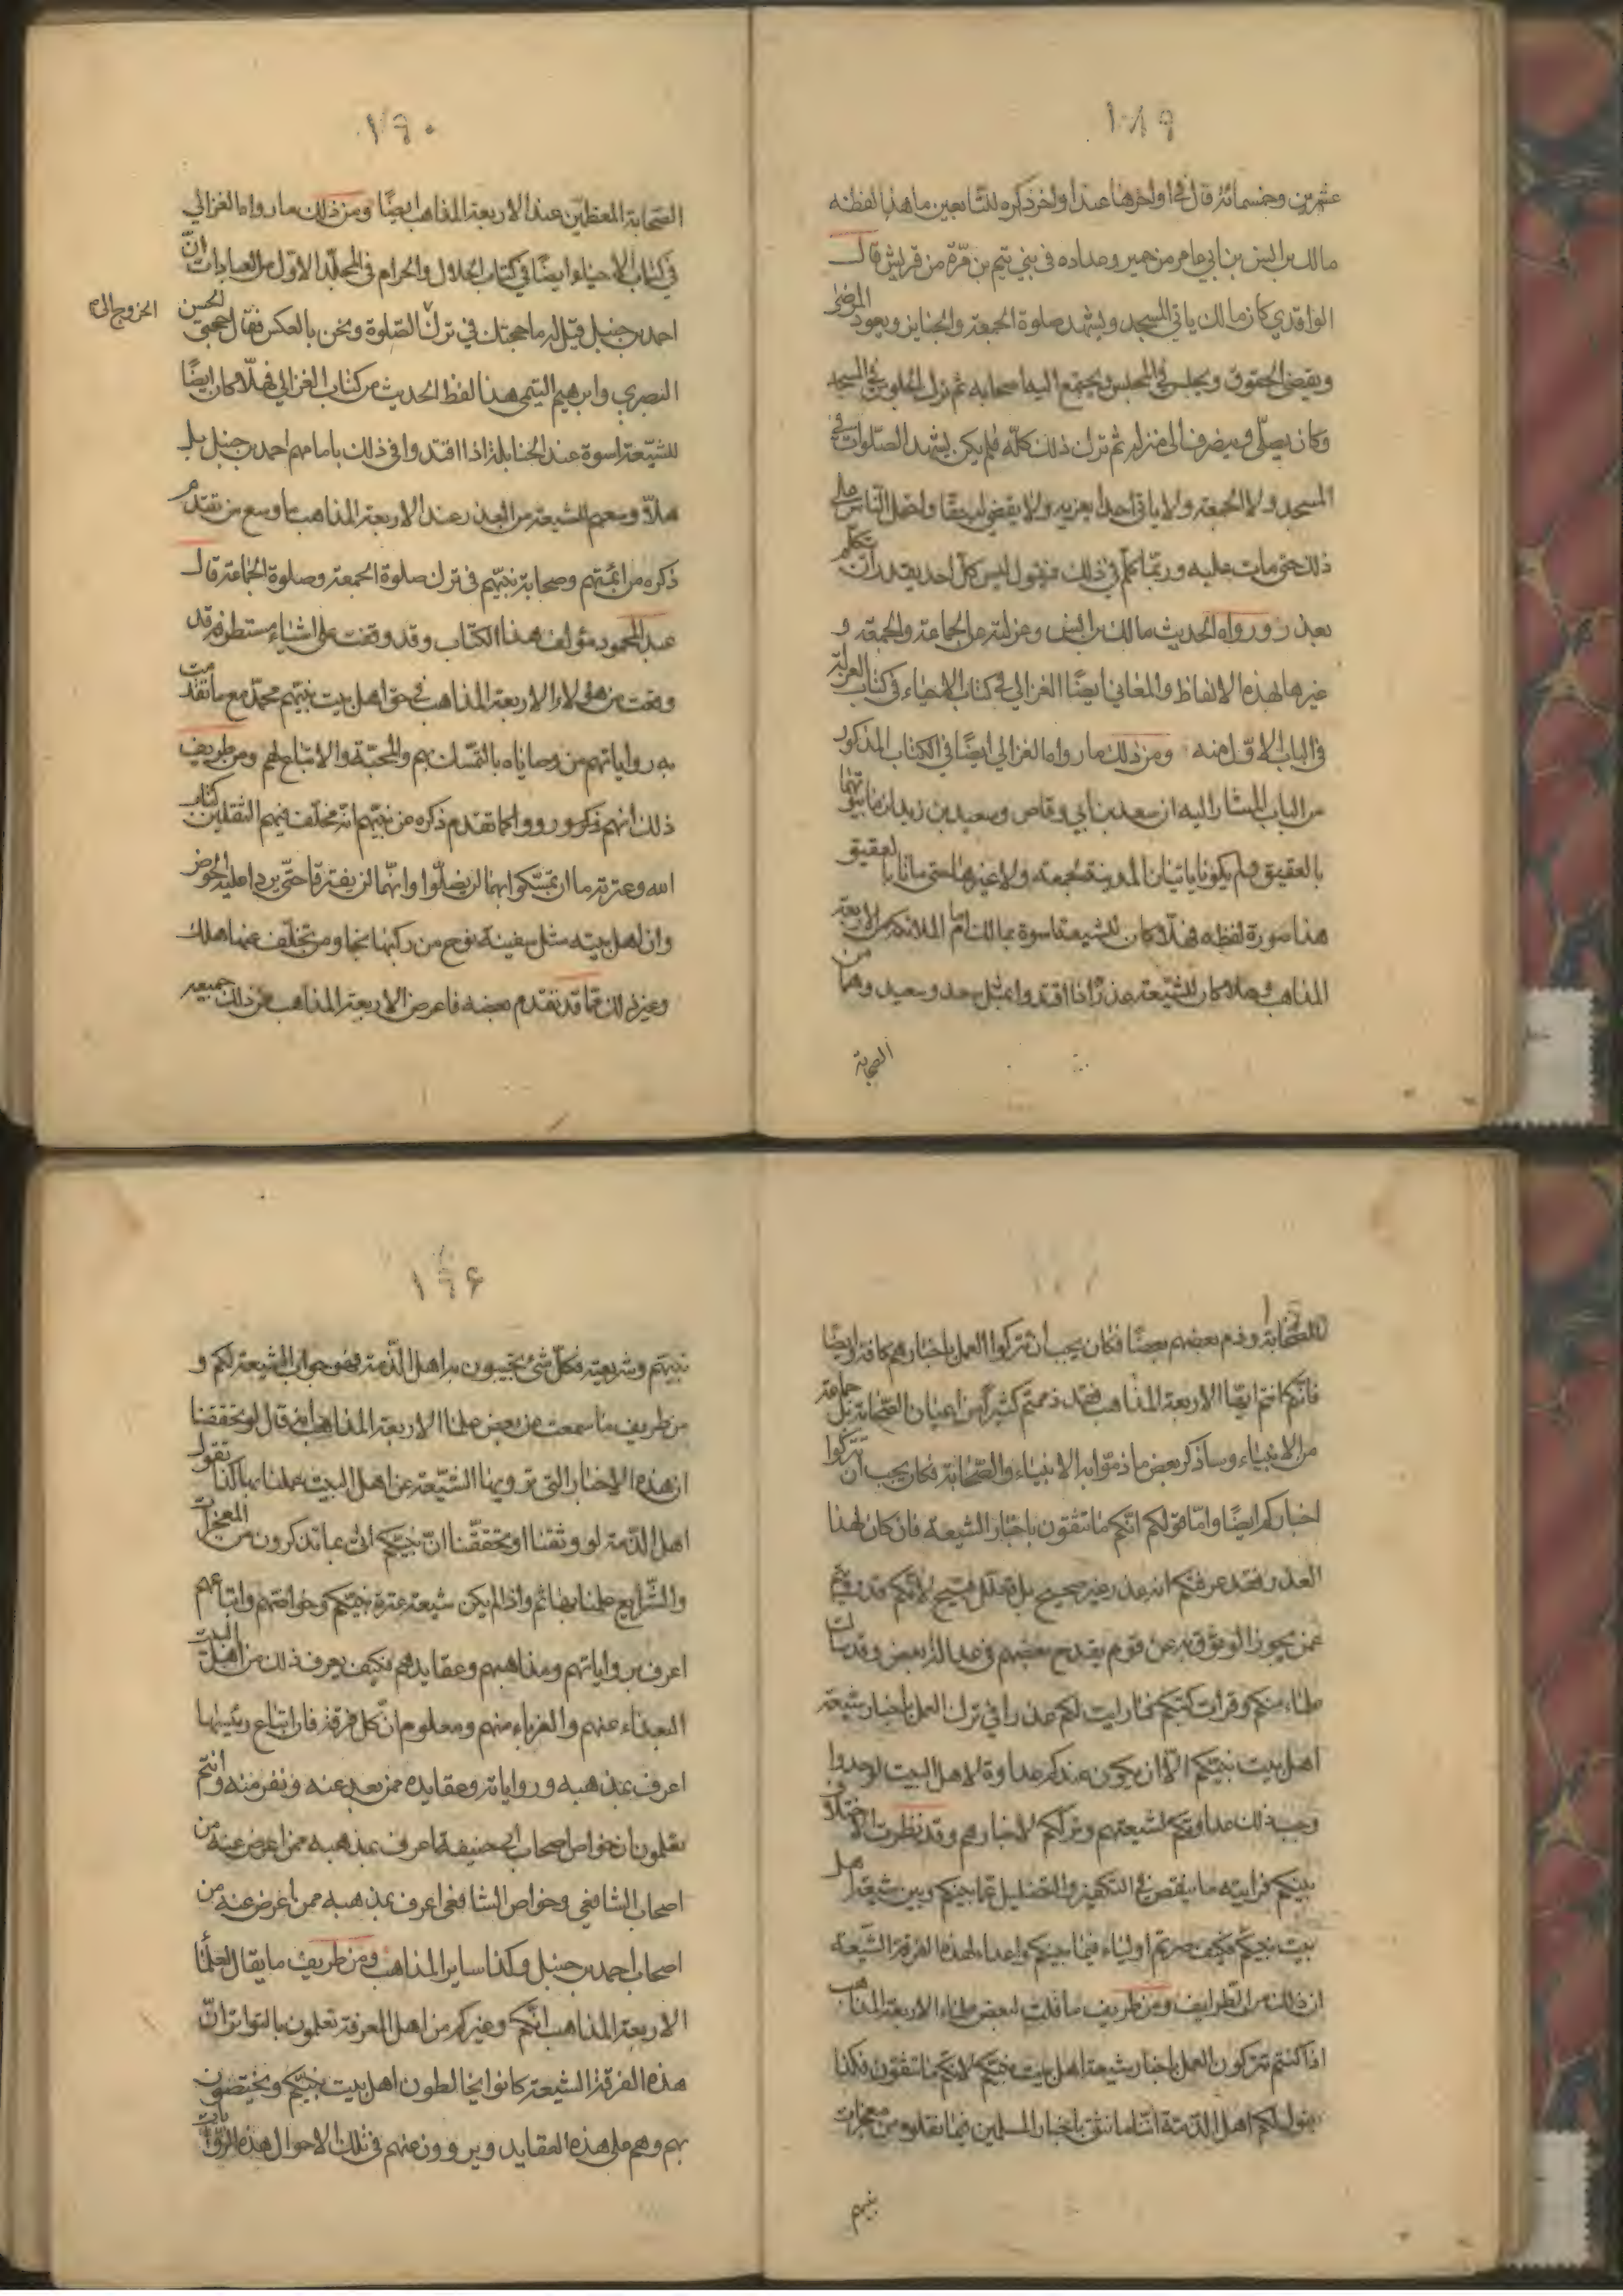 ١٨٩
عشرين وخمسمائة قال في اواخرها عند اواخر ذكره للتابعين ما هذا لفظه
مالك بن انس بن ابي عامر من حمير وعداده في بني تيم بن مرّة من قريش قال
الواقدي كان مالك ياتي المسجد ويشهد صلوة الجمعة والجنايز ويعود المرضى
ويقضى الحقوق ويجلس في المجلس ويجتمع اليه اصحابه ثم ترك الجلوس في المسجد
وكان يصلّي وينصرف الى منزله ثم ترك ذلك كلّه فلم يكن يشهد الصّلوات في
المسجد ولا الجمعة ولا ياتي احدا يعزيه ولا يقضي له حقا واحتمل الناس على
ذلك حتى مات عليه وربّما تكلّم في ذلك فيقول ليس كل احد يقدر ان يتكلّم
بعذر وروى هذا الحديث مالك بن انس وعزلته عن الجماعة والجمعة و
غيرها بهذه الالفاظ والمعاني ايضًا الغزالي في كتاب الاحياء في كتاب العزلة
في الباب الاوّل منه ومن ذلك ما رواه الغزالي ايضًا في الكتاب المذكور
من الباب المشار اليه ان سعد بن ابي وقاص وسعيد بن زيد لزما بيوتهما
بالعقيق ولم يكونا ياتيان المدينة لجمعة ولا غيرها حتى ماتا بالعقيق
هذا صورة لفظه فهلّا كان للشيعة اسوة بمالك امام المالكية من الاربعة
المذاهب وهلا كان للشيعة عذر اذا اقتدوا بمثل سعد وسعيد وهما من
الصحابة
١٩٠
الصّحابة المعظمين عند الاربعة المذاهب ايضًا ومن ذلك ما رواه الغزالي
في كتاب الاحياء ايضًا في كتاب الحلال والحرام في المجلّد الاوّل من العبادات انّ
احمد بن حنبل قيل له ما حجتك في ترك الصّلوة ونحن بالعكس فقال حجتي الحسن
الخروج الى
البصري وابرهيم التيمي هذا لفظ الحديث من كتاب الغزالي فهلّا كان ايضًا
للشيّعة اسوة عند الحنابلة اذا اقتدوا في ذلك بامامهم احمد بن حنبل بل
هلّا وسعهم للشيعة من العذر عند الاربعة المذاهب ما وسع من تقدم
ذكره من ائمّتهم وصحابة نبيّهم في ترك صلوة الجمعة وصلوة الجماعة قال
عبد المحمود مؤلف هذا الكتاب وقد وقفت على اشياء مستطرفة قد
وقعت من هؤلاء الاربعة المذاهب في حق اهل بيت نبيّهم محمّد مع ما تقدمت
به رواياتهم من وصاياه بالتمّسك بهم والمحبّة والاتباع لهم ومن طريف
ذلك انهم ذكروا ورووا كما تقدم ذكره من نبيّهم انّه مخلّف فيهم الثقلين كتاب
الله وعترته ما ان تمسّكوا بهما لن يضلّوا وانّهما لن يفترقا حتّى يردا عليه الحوض
وان اهل بيته مثل سفينة نوح من ركبها نجا ومن تخلّف عنها هلك
وغير ذلك ممّا قد تقدم بعضه فاعرض الاربعة المذاهب عن ذلك جميعه
للصّحابة وذم بعضهم بعضًا فكان يجب ان تتركوا العمل باخبارهم كافة وايضًا
فانّكم انتم ايّها الاربعة المذاهب فقد ذممتم كثيرًا من اعيان الصّحابة بل جماعة
من الانبياء وساذكر بعض ما ذمّوا به الانبياء والصّحابة فكان يجب ان تتركوا
اخباركم ايضًا وامّا قولكم انّكم ما تثقون باخبار الشيعة فان كان لهذا
العذر فقد عرفتكم انه عذر غير صحيح بل تعلّل قبيح لانّكم قد رويتم
عمن يجوز الوثوق به عن قوم يقدح بعضهم في عدالة بعض وقد سالت
علماء منكم وقرات كتبكم فما رايت لكم عذرا في ترك العمل باخبار شيعة
اهل بيت نبيّكم الّا ان يكون عندكم عداوة لاهل البيت لوجدوا
وجبه ذلك عداوتكم لشيعتهم وترككم لاخبارهم وقد نظرت الاختلاف
بينكم فرايته ما ينقص في التكفير والتضليل عمّا بينكم وبين شيعة اهل
بيت نبيّكم فكيف صرتم اولياء فيما بينكم واعداء لهذه الفرقة الشّيعة
ان ذلك من الطرايف ومن طريف ما قلت لبعض علماء الاربعة المذاهب
اذا كنتم تتركون العمل باخبار شيعة اهل بيت نبيّكم لانّكم ما تثقون فكذا
يقول لكم اهل الذمّة انّنا ما نثق باخبار المسلمين فيما نقلوه من معجزات
نبيهم
١٩۶
نبيّهم وشريعته فكلّ شئ تجيبون به اهل الذّمة فهو جواب الشيعة لكم و
من طريف ما سمعت من بعض علماء الاربعة المذاهب انه قال لو تحققنا
ان هذه الاخبار التي ترويها الشيّعة عن اهل البيت عملنا بها كما تقول
اهل الذّمة لو وثقنا او تحققّنا انّ نبيّكم اتى بما تذكرون من المعجزات
والشّرايع عملنا بها ثم واذا لم يكن شيعة عترة نبيّكم وخواصّهم واتباعهم
اعرف برواياتهم ومذاهبهم وعقايدهم فكيف يعرف ذلك من اهل البيت
البعداء عنهم والغرباء منهم ومعلوم انّ كلّ فرقة فان اتباع رئيسها
اعرف بمذهبه ورواياته وعقايده ممن بعد عنه ونفر منه وانتم
تعلمون ان خواص اصحاب ابي حنيفة اعرف بمذهبه ممن اعرض عنه من
اصحاب الشافعي وخواص الشافعي اعرف بمذهبه ممن اعرض عنه من
اصحاب احمد بن حنبل وكذا ساير المذاهب ومن طريف ما يقال لعلماء
الاربعة المذاهب انّكم وغيركم من اهل المعرفة تعلمون بالتواتر انّ
هذه الفرقة الشيعة كانوا يخالطون اهل بيت نبيّكم ويختصّون
بهم وهم على هذه العقايد ويروون عنهم في تلك الاحوال هذه الرّوايات